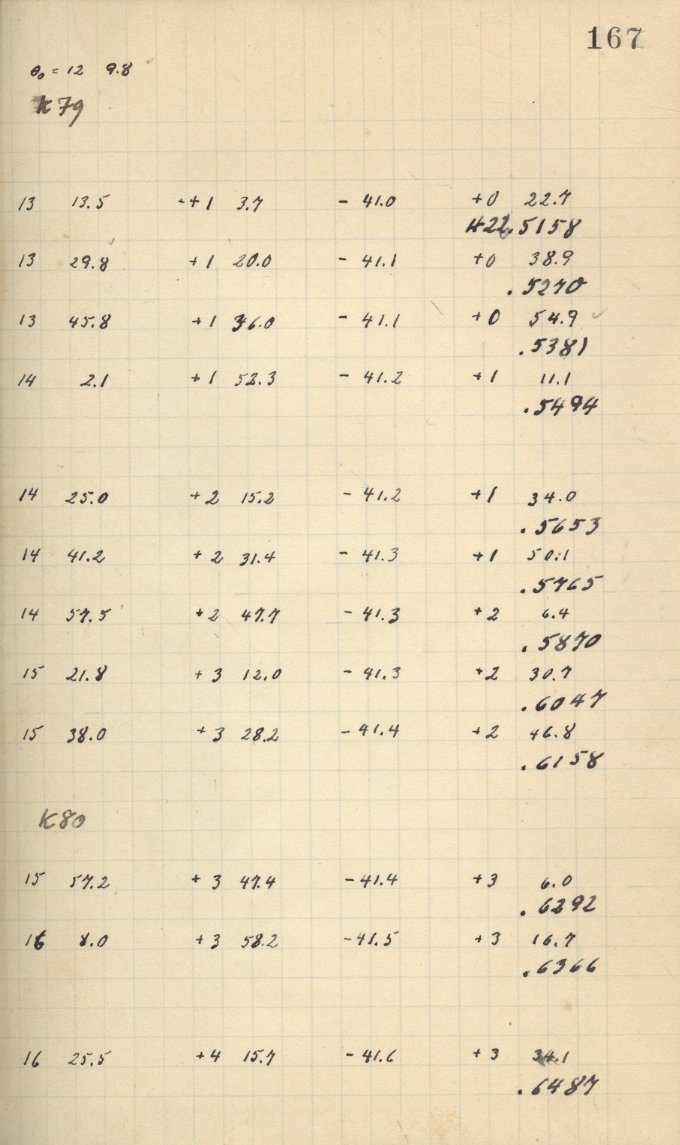 167
θ₀ = 12 9.8
K 79
13 13.5 + 1 3.7 - 41.0 + 0 22.7
422.5158
13 29.8 + 1 20.0 - 41.1 + 0 38.9
.5270
13 45.8 + 1 36.0 - 41.1 + 0 54.9
.5381
14 2.1 + 1 52.3 - 41.2 + 1 11.1
.5494
14 25.0 + 2 15.2 - 41.2 + 1 34.0
.5653
14 41.2 + 2 31.4 - 41.3 + 1 50.1
.5765
14 57.5 + 2 47.7 - 41.3 + 2 6.4
.5870
15 21.8 + 3 12.0 - 41.3 + 2 30.7
.6047
15 38.0 + 3 28.2 - 41.4 + 2 46.8
.6158
K 80
15 57.2 + 3 47.4 - 41.4 + 3 6.0
.6292
16 8.0 + 3 58.2 - 41.5 + 3 16.7
.6366
16 25.5 + 4 15.7 - 41.6 + 3 34.1
.6487